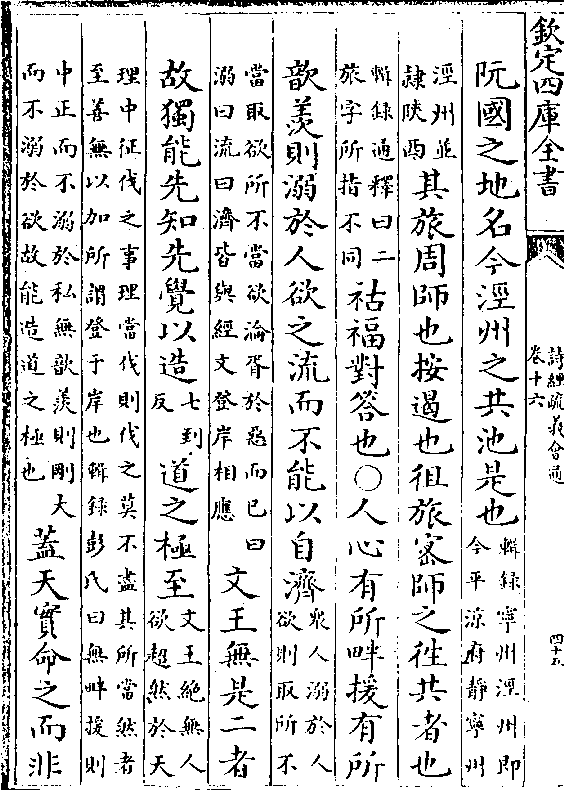 欽定四庫全書
詩經疏義會通
卷十六
四十五
阮國之地名今涇州之共池是也
輯録寧州涇州即
今平涼府静寧州
涇州並
隸陜西
其旅周師也按遏也徂旅密師之徃共者也
輯録通釋曰二
旅字所指不同
祜福對答也○人心有所畔援有所
歆羨則溺於人欲之流而不能以自濟
衆人溺於人
欲則取所不
當取欲所不當欲淪胥於惡而已曰
溺曰流曰濟皆與經文登岸相應
文王無是二者
故獨能先知先覺以造
七到
反
道之極至
文王絶無人
欲超然於天
理中征伐之事理當伐則伐之莫不盡其所當然者
至善無以加所謂登于岸也輯録彭氏曰無畔援則
中正而不溺於私無歆羨則剛大
而不溺於欲故能造道之極也
蓋天實命之而非